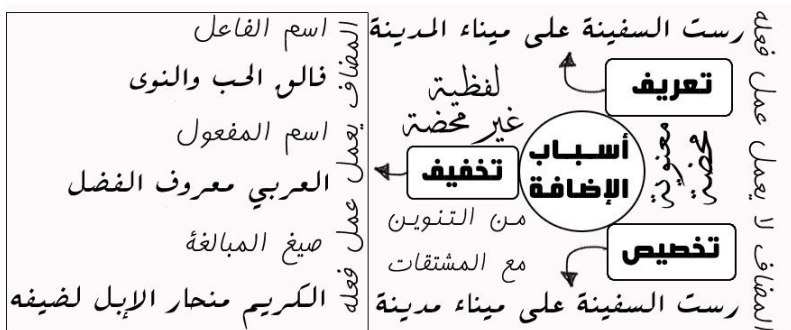 المضاف لا يعمل عمل فعله
رست السفينة على ميناء المدينة
تعريف
محضة
معنوية
أسباب
الإضافة
تخصيص
رست السفينة على ميناء مدينة
لفظية
غير محضة
تخفيف
من التنوين
مع المشتقات
المضاف يعمل عمل فعله
اسم الفاعل
فالق الحب والنوى
اسم المفعول
العربي معروف الفضل
صيغ المبالغة
الكريم منحار الإبل لضيفه